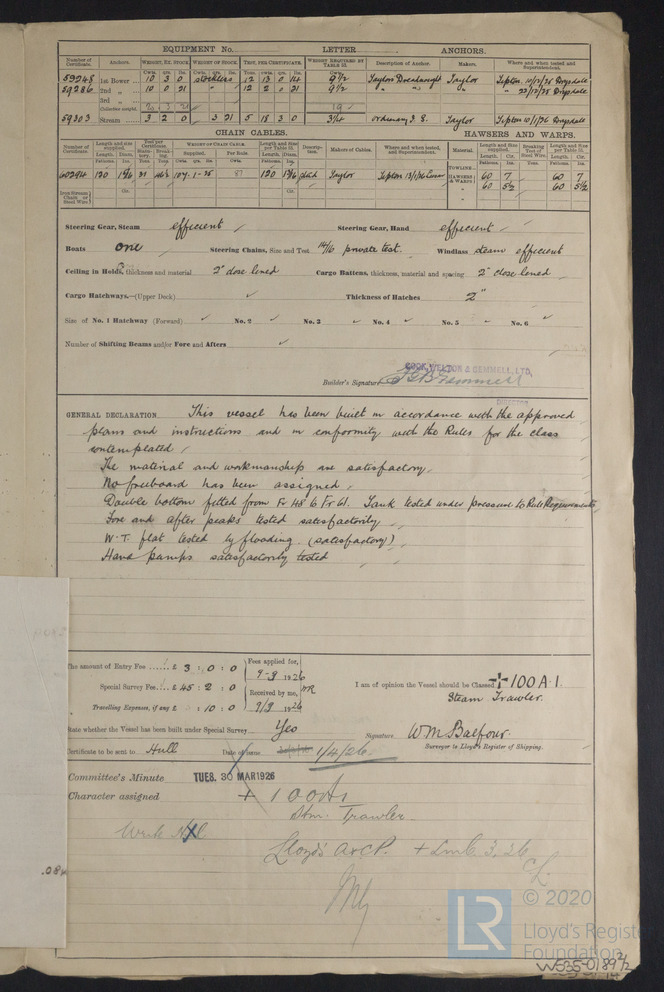 EQUIPMENT No. LETTER ANCHORS.
Number of Certificate. Anchors. WEIGHT, EX. STOCK. WEIGHT OF STOCK. TEST, PER CERTIFICATE. WEIGHT REQUIRED BY TABLE 31. Description of Anchor. Makers. Where and when tested and Superintendent.
Cwts. qrs. lbs. Cwts. qrs. lbs. Tons. cwts. qrs. lbs. Cwts.
59248 1st Bower 10 3 0 stockless 12 13 0 14 9 1/2 Taylors Dreadnought Taylor Tipton 10/12/25 Drysdale
59286 2nd " 10 0 21 " 12 2 0 21 9 1/2 " " " " 22/12/25 Drysdale
3rd "
Collective weight. 20 3 21 19
59303 Stream 3 2 0 3 21 5 18 3 0 3 1/4 ordinary Taylor Tipton 10/1/26 Drysdale
CHAIN CABLES. HAWSERS AND WARPS.
Number of Certificate. Length and size supplied. Test per Certificate. WEIGHT OF CHAIN CABLE. Length and Size per Table 31. Description. Makers of Cables. Where and when tested, and Superintendent. Material. Length and Size supplied. Breaking Test of Steel Wire. Length and Size per Table 31.
60294 120 107. 1. 25 120 stud Taylor Tipton 13/1/26
TOWLINE
HAWSERS & WARPS 60 7 60 7
" 60 5 1/2 60 5 1/2
Iron Stream Chain or Steel Wire
Steering Gear, Steam efficient Steering Gear, Hand efficient
Boats one Steering Chains, Size and Test 14/16 private test. Windlass steam efficient
Ceiling in Holds, thickness and material 2" close lined Cargo Battens, thickness, material and spacing 2" close lined
Cargo Hatchways.—(Upper Deck) ✓ Thickness of Hatches 2"
Size of No. 1 Hatchway (Forward) ✓ No. 2 ✓ No. 3 ✓ No. 4 ✓ No. 5 No. 6 ✓
Number of Shifting Beams and/or Fore and Afters ✓
COOK, WELTON & GEMMELL, LTD.
Builder's Signature
DIRECTOR
GENERAL DECLARATION This vessel has been built in accordance with the approved
plans and instructions and in conformity with the Rules for the class
contemplated
The material and workmanship are satisfactory.
No freeboard has been assigned.
Double bottom fitted from Fr 48 to Fr 61. Tank tested under pressure to Rule Requirements
Fore and after peaks tested satisfactorily
W.T. flat tested by flooding. (satisfactory)
Hand pumps satisfactorily tested
The amount of Entry Fee ... £ 3 : 0 : 0 Fees applied for, 9-3 1926
Special Survey Fee ... £ 45 : 2 : 0 Received by me,
Travelling Expenses, if any £ : 10 : 0 9/3 1926
I am of opinion the Vessel should be Classed + 100 A.1.
Steam Trawler.
State whether the Vessel has been built under Special Survey Yes
Signature WM Balfour.
Surveyor to Lloyd's Register of Shipping.
Certificate to be sent to Hull Date of issue 1/4/26
Committee's Minute TUES. 30 MAR 1926
Character assigned + 100A1
Stm. Trawler
Write
Lloyd's A&CP. + LMC 3.26
.08
© 2020
LR
Lloyd's Register
Foundation
W535-0189 2/2